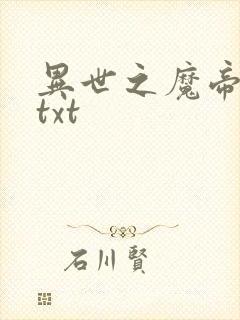 異世之魔帝
txt
石川賢